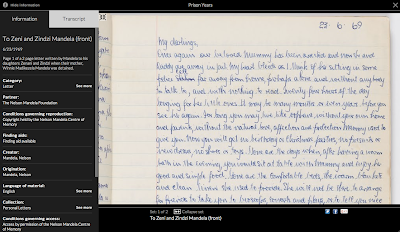 Hide Information
Prison Years
Information
Transcript
To Zeni and Zindzi Mandela (front)
6/23/1969
Page 1 of a 2 page letter written by Mandela to his
daughters Zenani and Zindzi when their mother,
Winnie Madikizela-Mandela was detained.
Category:
Letter
See more
Partner:
The Nelson Mandela Foundation
Conditions governing reproduction:
Copyright held by the Nelson Mandela Centre of
Memory
Finding aids:
Finding aid available
Creator:
Mandela, Nelson
Origination:
Mandela, Nelson
Language of material:
English
See more
Collection:
Personal Letters
See more
Conditions governing access:
Access by permission of the Nelson Mandela Centre
of Memory
23 . 6 . 69
My darlings,
Once again our beloved Mummy has been arrested and now she and
Daddy are away in jail. My heart bleeds as I think of her sitting in some
police cell far away from home, perhaps alone and without anybody
to talk to, and with nothing to read. Twenty four hours of the day
longing for her little ones. It may be many months or even years before you
see her again. For long you may live like orphans without your own home
and parents, without the natural love, affection and protection Mummy used to
give you. Now you will get no birthday or Christmas parties, no presents or
new dresses, no shoes or toys. Gone are the days when, after having a warm
bath in the evening, you would sit at table with Mummy and enjoy her
good and simple food. Gone are the comfortable beds, the warm blankets
and clean linen she used to provide. She will not be there to arrange
for friends to take you to bioscopes, concerts and plays, or to tell you nice
Set: 1 of 2
Collapse set
To Zeni and Zindzi Mandela (front)